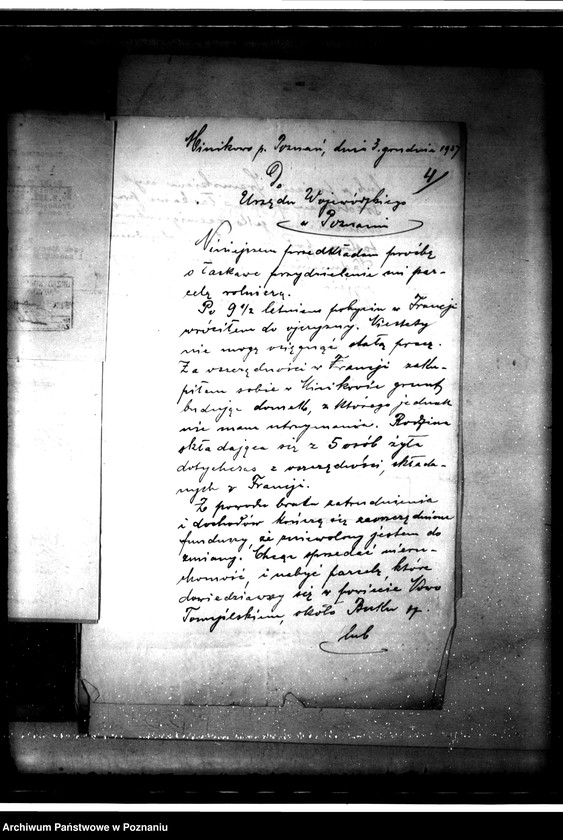 Minikowo p. Poznań, dnia 3. grudnia 1937
4
Do
Urzędu Wojewódzkiego
w Poznaniu
Niniejszem przedkładam prośbę
o łaskawe przydzielenie mi par-
celę rolniczą.
Po 9 1/2 letniem pobyciu w Francji
wróciłem do ojczyzny. Niestety
nie mogę osiągnąć stałą pracę.
Za oszczędności w Francji zaku-
piłem sobie w Minikowie grunt
budując domek, z którego jednak
nie mam utrzymania. Rodzina
składająca się z 5 osób żyła
dotychczas z oszczędności, składa-
nych w Francji.
Z powodu braku zatrudnienia
i dochodów kończą się zaoszczędzone
fundusze, że zniewolony jestem do
zmiany. Chcąc sprzedać nieru-
chomość, i nabyć parcelę, które
dowiedziawszy się w powiecie Nowo
Tomyślskiem, około Buku sp.
lub
Archiwum Państwowe w Poznaniu